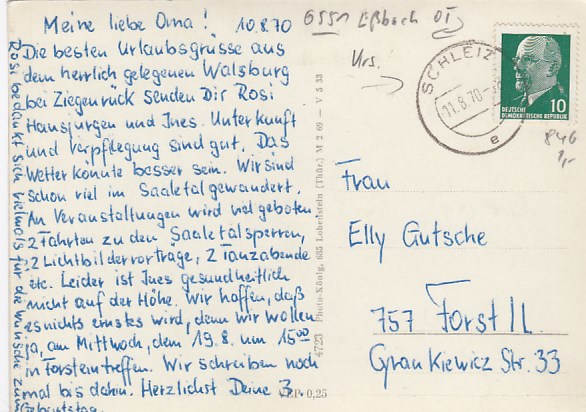 Meine liebe Oma! 10.8.70
Die besten Urlaubsgrüsse aus
dem herrlich gelegenen Walsburg
bei Ziegenrück senden Dir Rosi
Hansjürgen und Ines. Unterkunft
und Verpflegung sind gut. Das
Wetter könnte besser sein. Wir sind
schon viel im Saaletal gewandert.
An Veranstaltungen wird viel geboten
2 Fahrten zu den Saaletalsperren,
2 Lichtbildervorträge, 2 Tanzabende
etc. Leider ist Ines gesundheitlich
nicht auf der Höhe. Wir hoffen, daß
es nichts ernstes wird, denn wir wollen
ja, am Mittwoch, dem 19.8. um 15ºº
in Forst eintreffen. Wir schreiben noch
mal bis dahin. Herzlichst Deine 3.
Rosi bedankt sich vielmals für die Wünsche zum
Geburtstag.
4723 Photo-König, 685 Lobenstein (Thür.) M 2 69 — V 5 33
EVP 0,25
6551 Eßbach OT
Urs.
SCHLEIZ
11.8.70
e
DEUTSCHE
DEMOKRATISCHE REPUBLIK
10
846
1,-
Frau
Elly Gutsche
757 Forst II.
Cyrankiewicz Str. 33